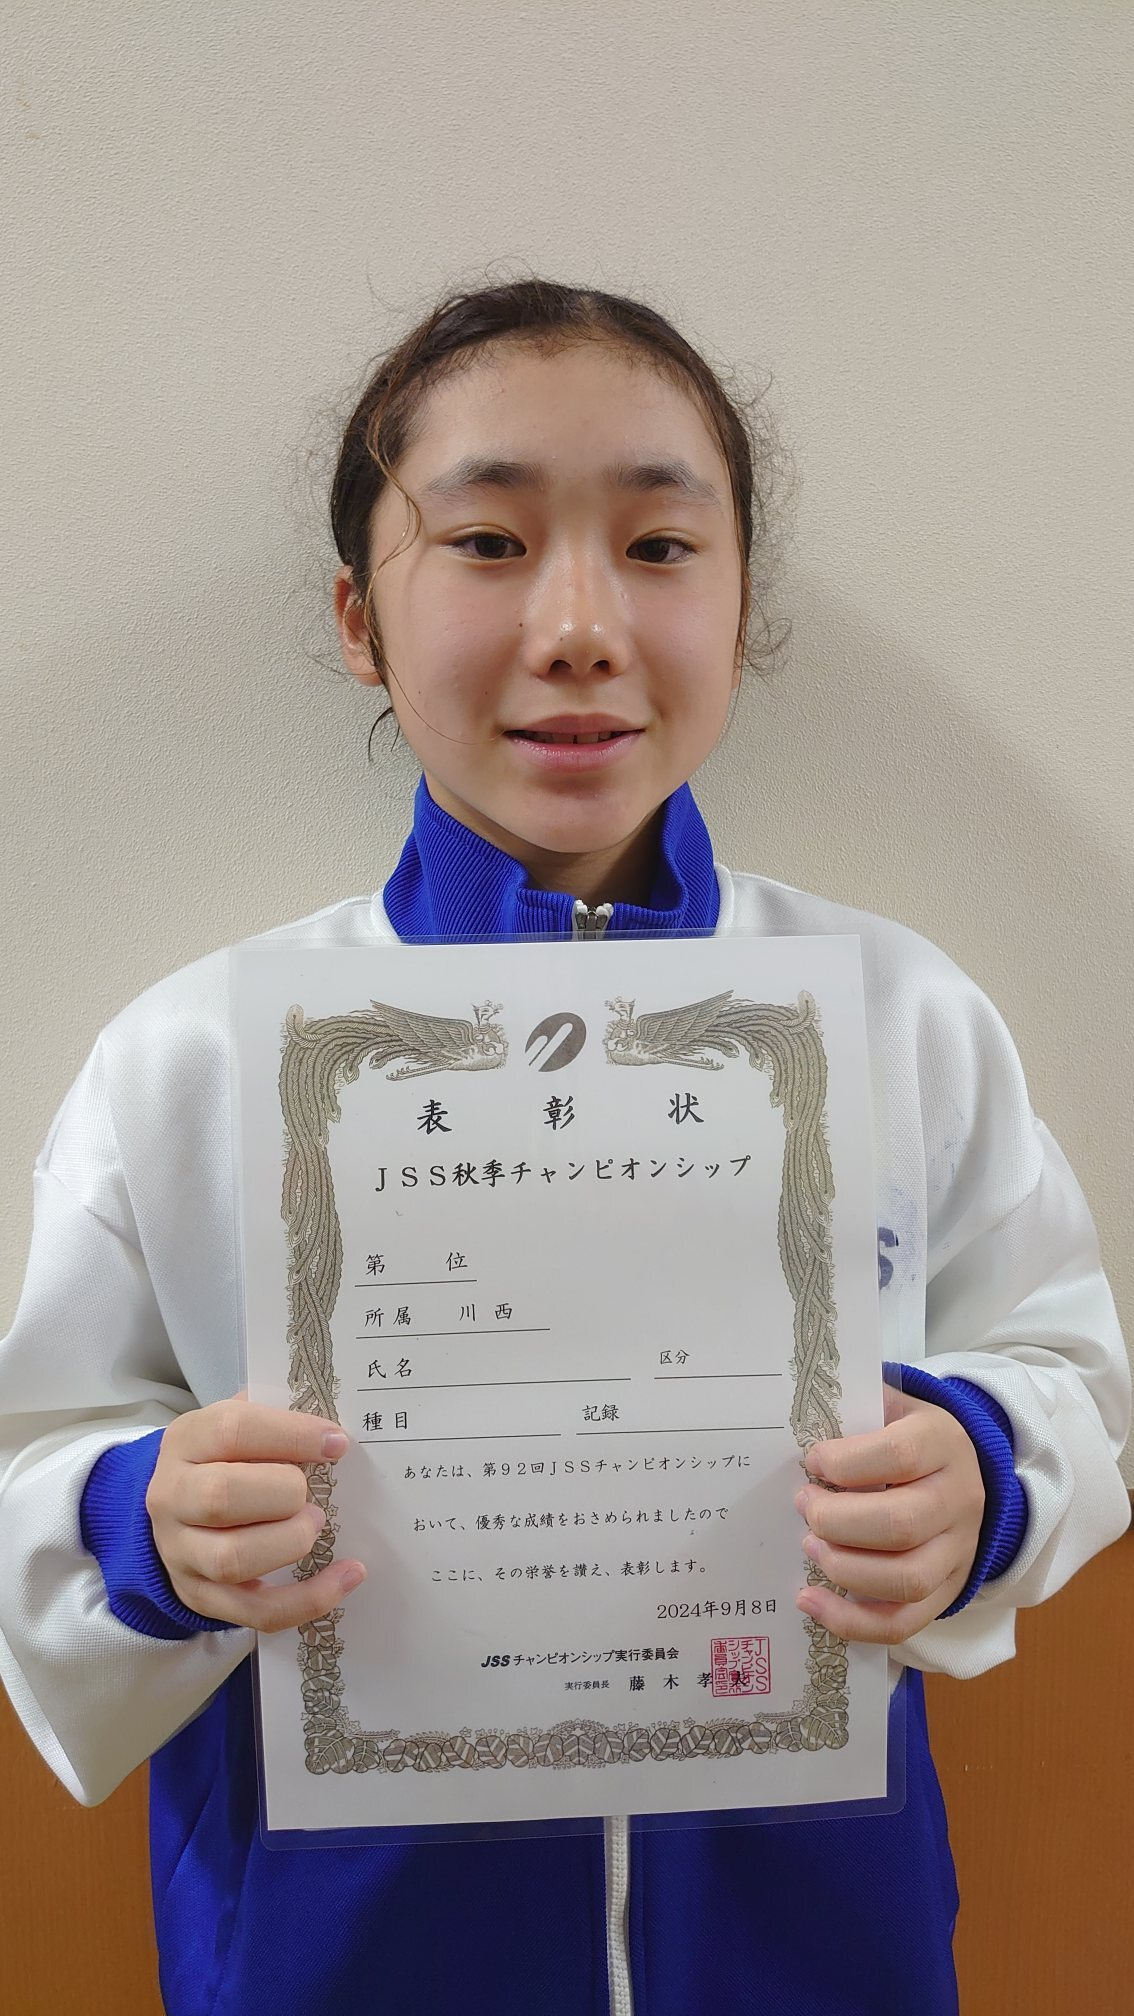 表彰状
JSS秋季チャンピオンシップ
第 位
所属 川西
氏名 区分
種目 記録
あなたは、第92回JSSチャンピオンシップに
おいて、優秀な成績をおさめられましたので
ここに、その栄誉を讃え、表彰します。
2024年9月8日
JSSチャンピオンシップ実行委員会
実行委員長 藤木孝夫
S